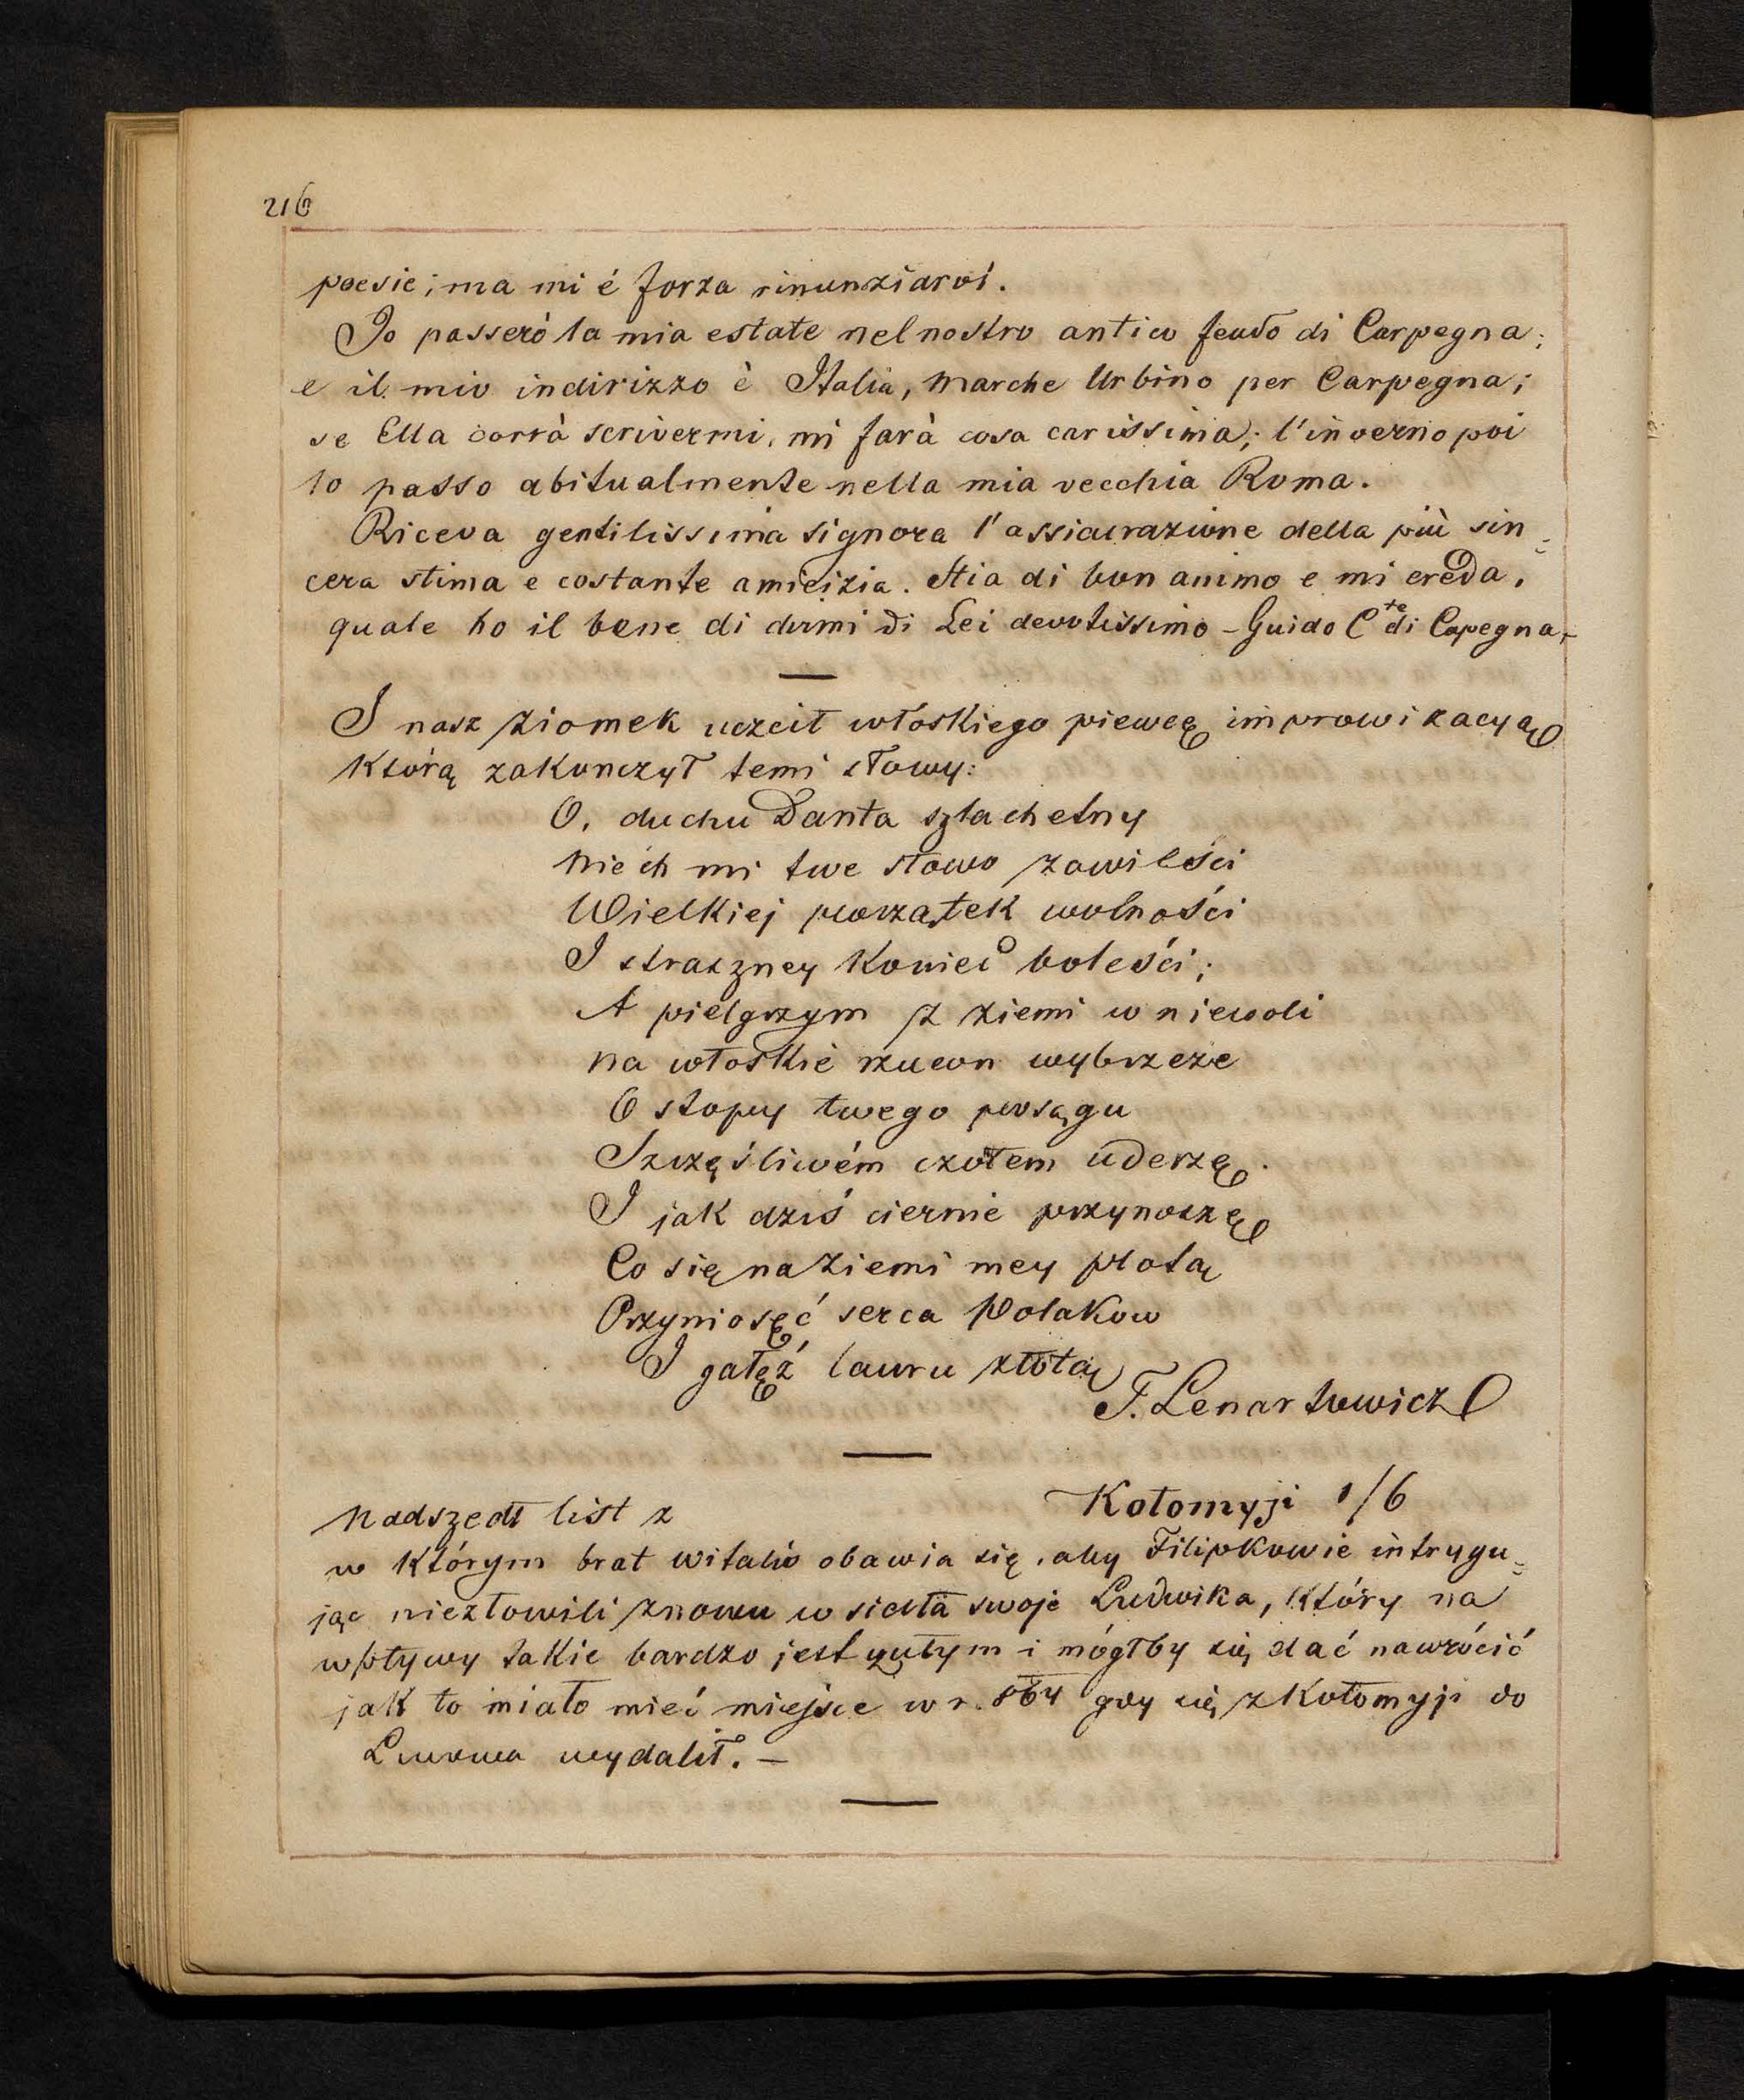 216
poesie; ma mi é forza rinunziarvi.
Io passerò la mia estate nel nostro antico feudo di Carpegna;
e il mio indirizzo è Italia, Marche Urbino per Carpegna;
se Ella vorrà scrivermi, mi farà cosa carissima; l'inverno poi
lo passo abitualmente nella mia vecchia Roma.
Riceva gentilissima signora l'assicurazione della più sin=
cera stima e costante amicizia. Stia di bon animo e mi creda,
quale ho il bene di dirmi di Lei devotissimo - Guido Cte di Capegna,-
I nasz ziomek uczcił włoskiego piewcę improwizacyą
którą zakonczył temi słowy:
O, duchu Danta szlachetny
Niech mi twe słowo zawieści
Wielkiej początek wolności
I straszney koniec boleści;
A pielgrzym z ziemi w niewoli
na włoskie rzucon wybrzeże
O stopy twego posągu
Szczęśliwém czołem uderzę.
I jak dziś ciernie przynoszę
Co się na ziemi mey plotą
Przyniosęć serca Polakow
I gałęź lauru złotą
T. Lenartowicz
Nadszedł list z Kołomyji 1/6
w którym brat Witalis obawia się, aby Filipkowie intrygu=
jąc niezłowili znowu w sidła swoje Ludwika, który na
wpływy takie bardzo jest czułym i mógłby się dać nawrócić
jak to miało mieć miejsce w r. 864 gdy się z Kołomyji do
Lwowa wydalił. -